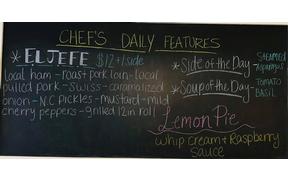 CHEF'S DAILY FEATURES
*EL JEFE $12+1side
local ham - roast pork loin - local
pulled pork - SWISS - caramalized
onion - N.C pickles - mustard - mild
cherry peppers - grilled 12in roll
*Side of the Day- STEAMED Asparagus
*Soup of the Day- TOMATO BASIL
Lemon Pie
whip cream + Raspberry
sauce